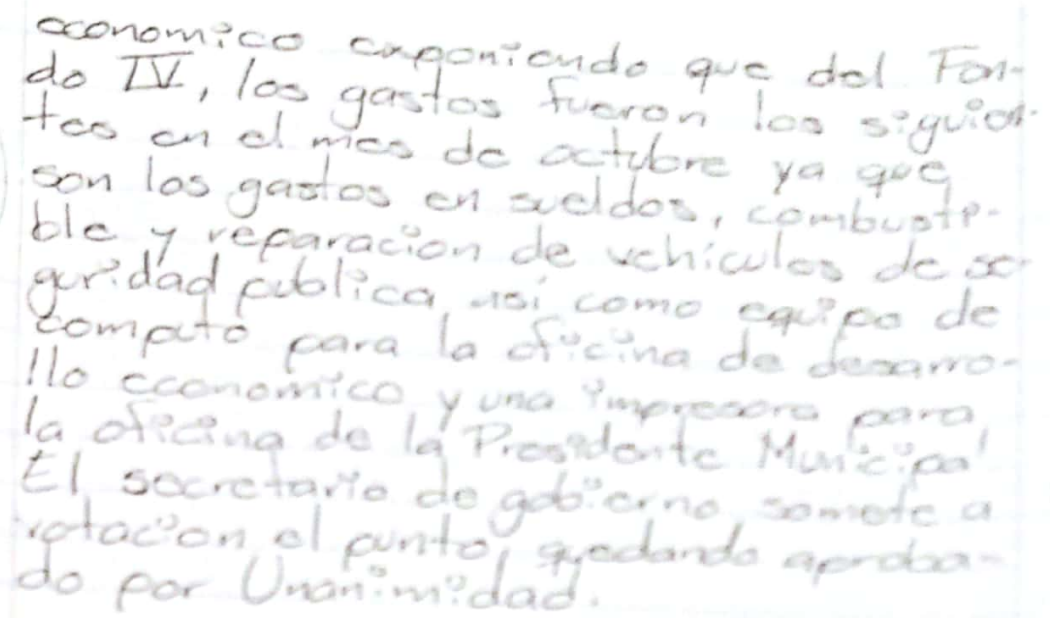 economico exponiendo que del Fon-
do IV, los gastos fueron los siguien-
tes en el mes de octubre ya que
son los gastos en sueldos, combusti-
ble y reparacion de vehiculos de se-
guridad publica, asi como equipo de
computo para la oficina de desarro-
llo economico y una impresora para
la oficina de la Presidente Municipal
El secretario de gobierno, somete a
votacion el punto, quedando aproba-
do por Unanimidad.